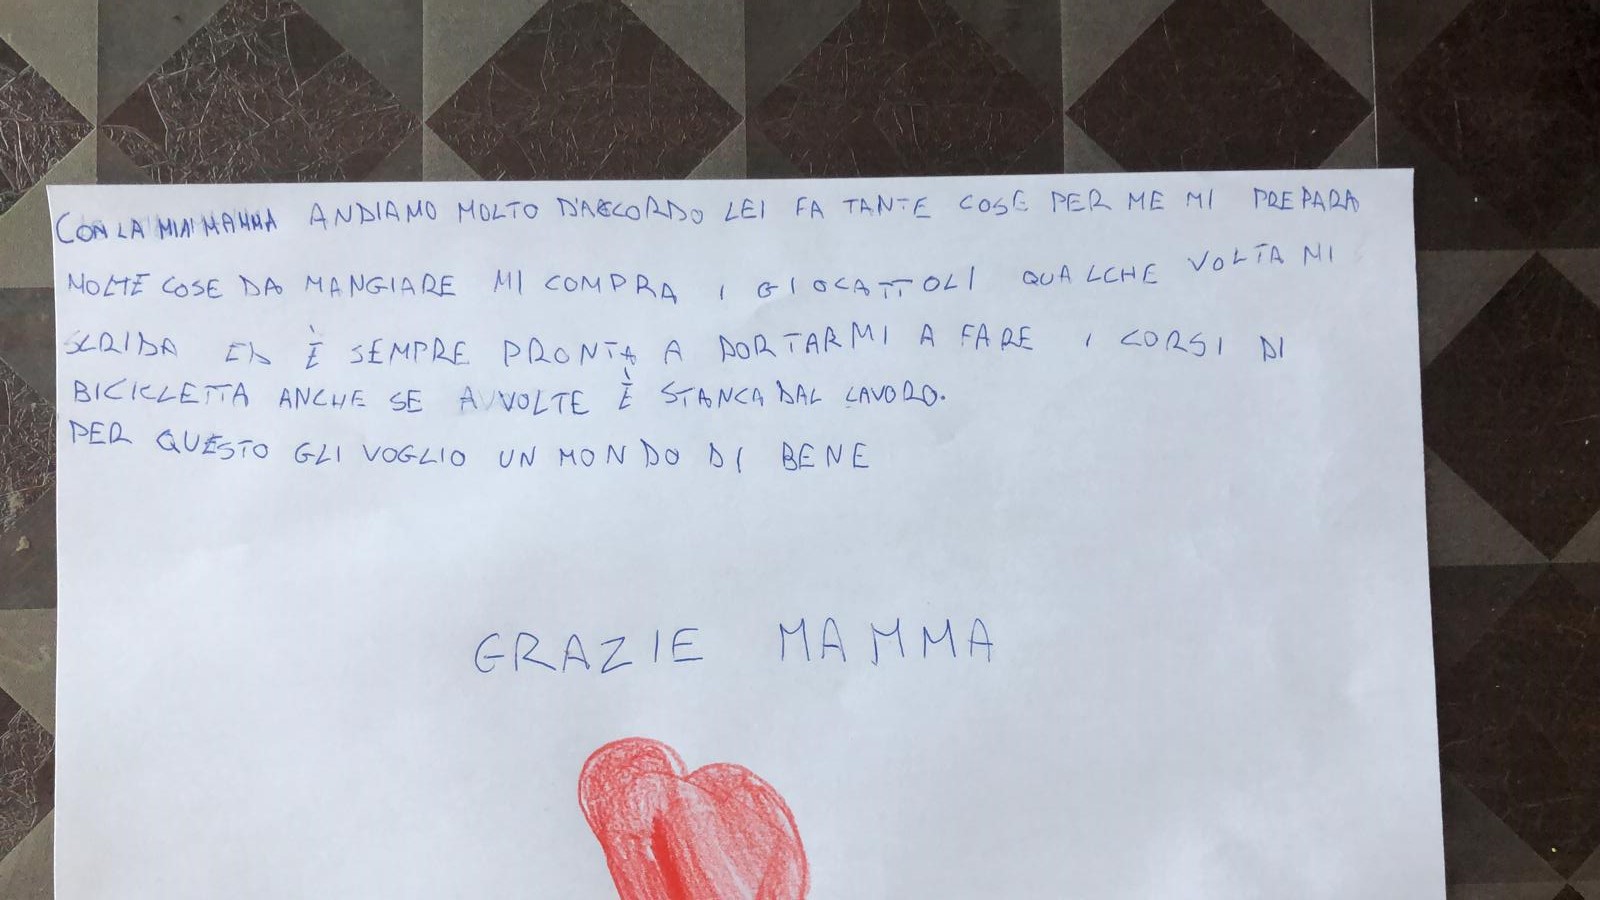 CON LA MIA MAMMA ANDIAMO MOLTO D'ACCORDO LEI FA TANTE COSE PER ME MI PREPARA
MOLTE COSE DA MANGIARE MI COMPRA I GIOCATTOLI QUALCHE VOLTA MI
SCRIDA ED È SEMPRE PRONTA A PORTARMI A FARE I CORSI DI
BICICLETTA ANCHE SE A VOLTE È STANCA DAL LAVORO.
PER QUESTO GLI VOGLIO UN MONDO DI BENE
GRAZIE MAMMA